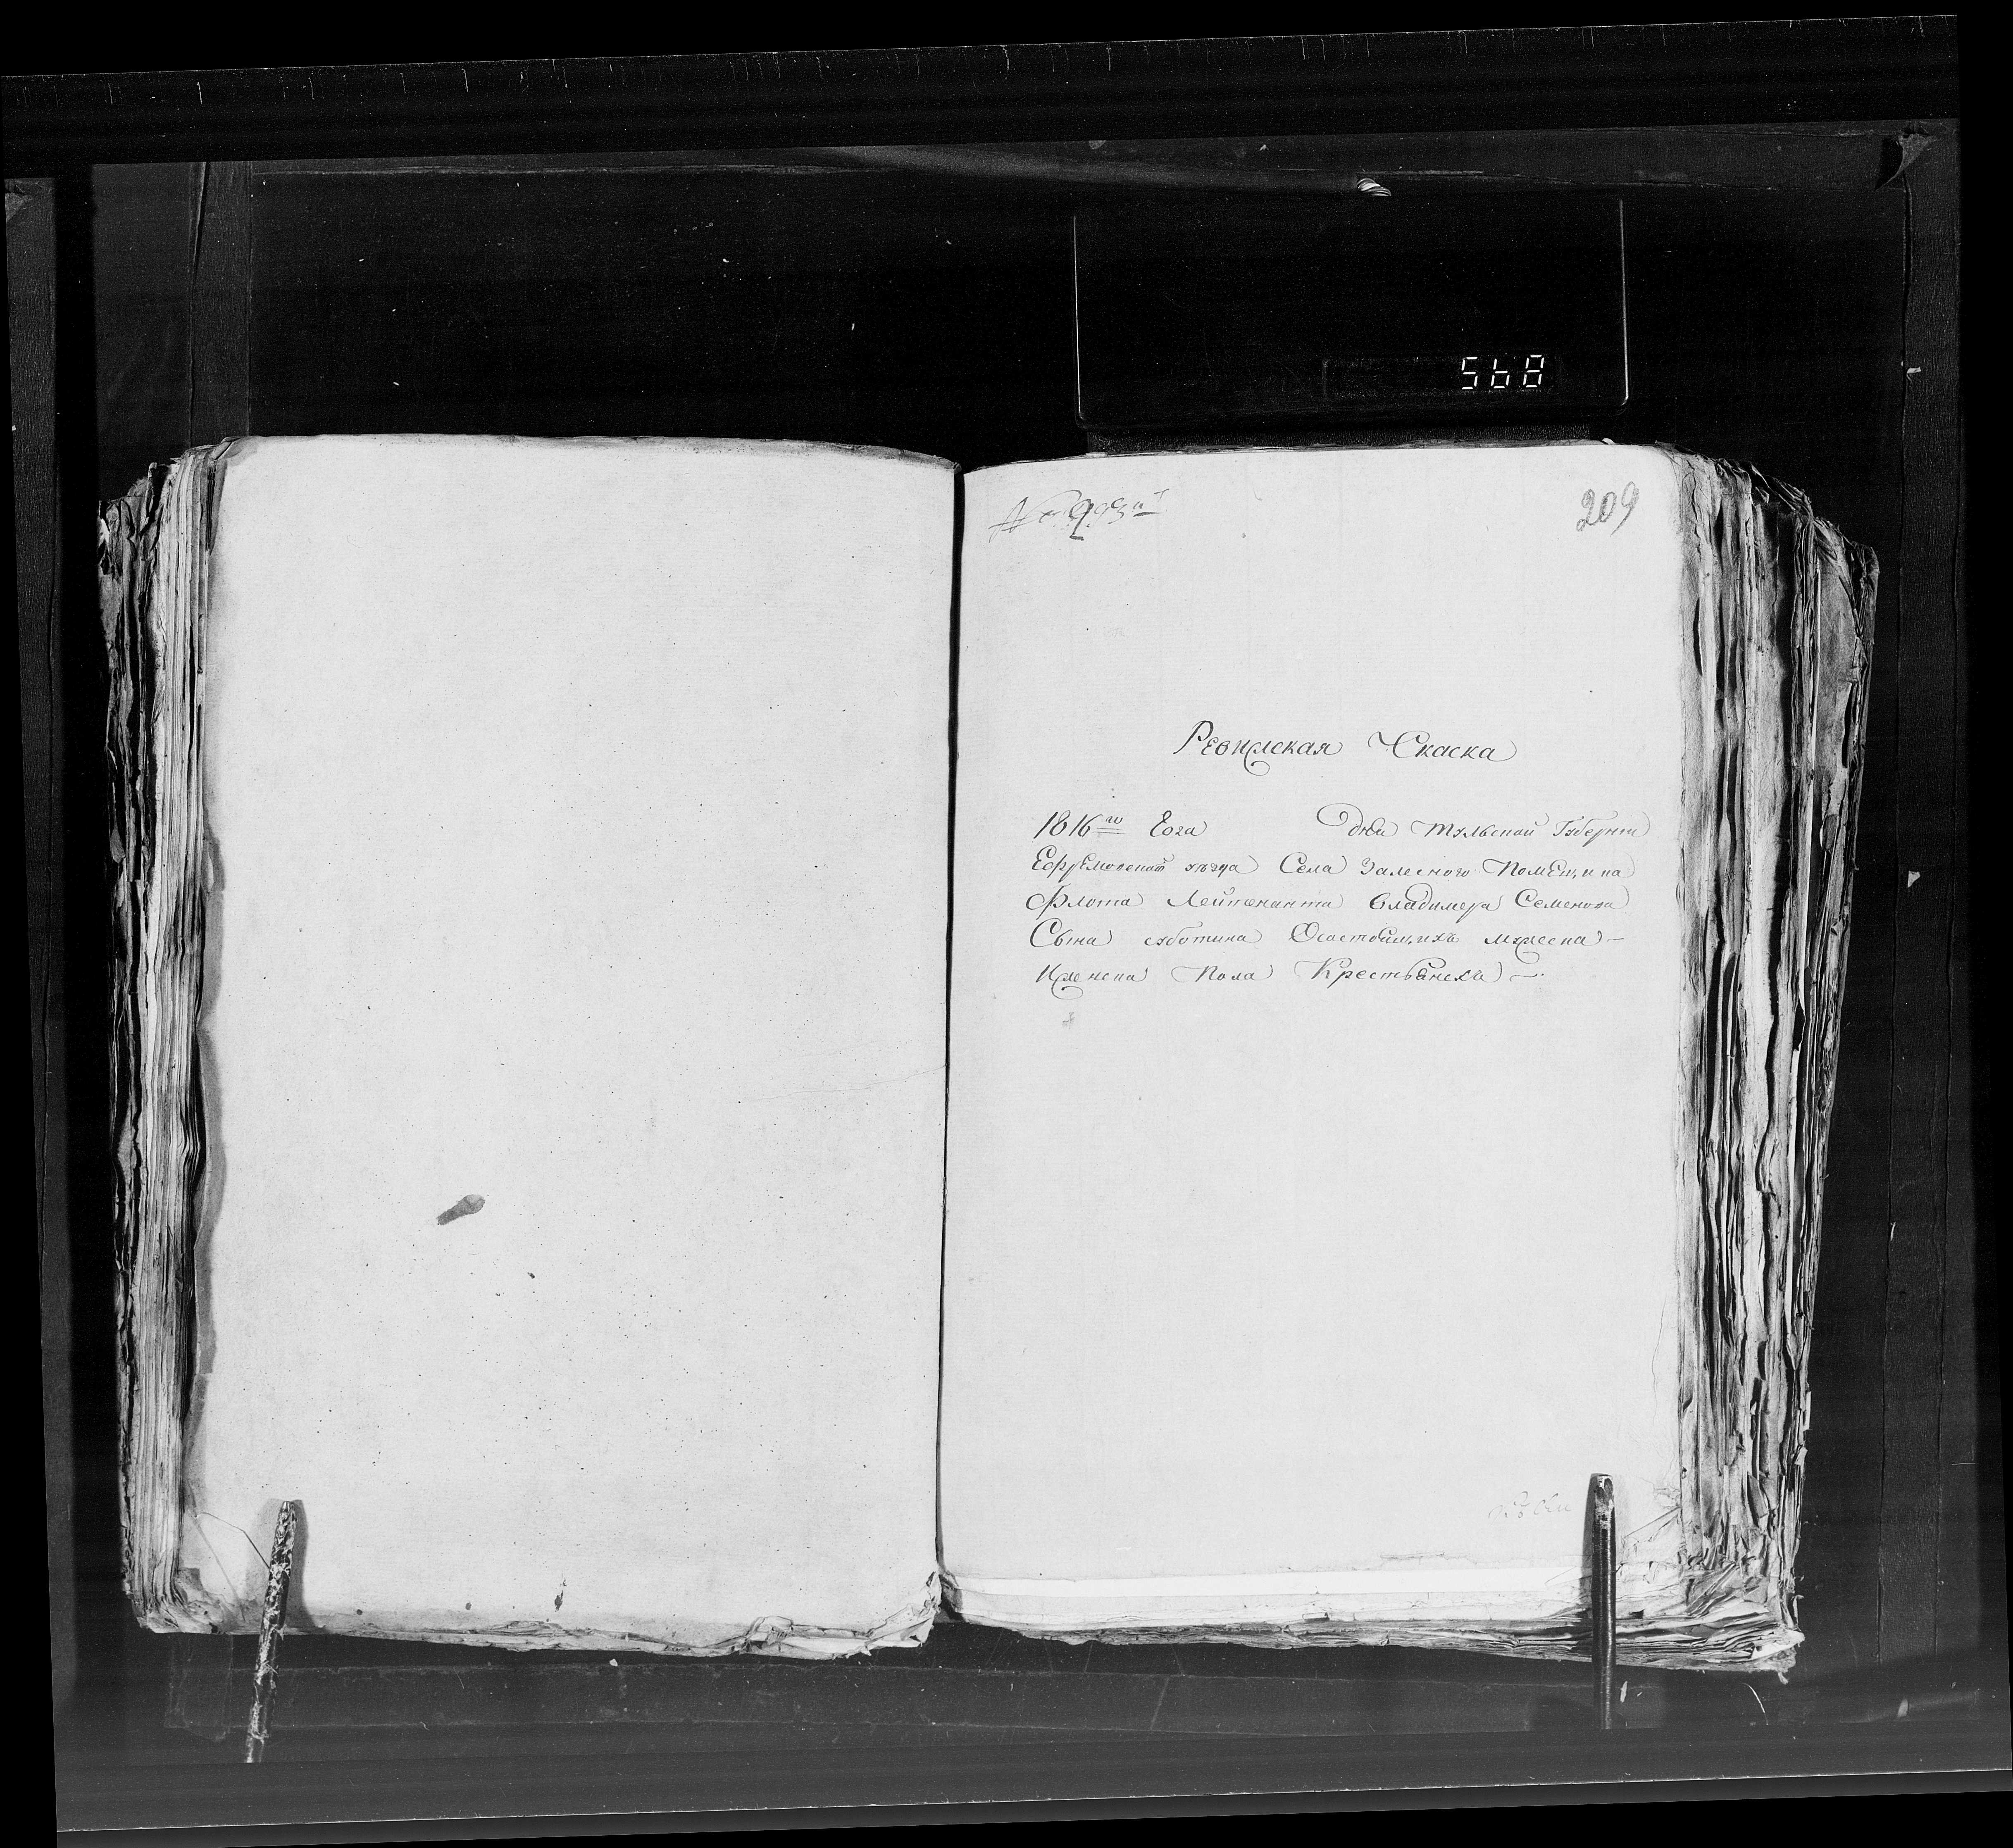 568
№ 993й
209
Ревижская Скаска
1816го Года Дня Тульской Губерни
Ефремовской уезда Села Залесного Помещика
Флота Лейтенанта Владимера Семенова
Сына суботина Осостоящихъ мужеска
Иженска Пола Крестьянехъ